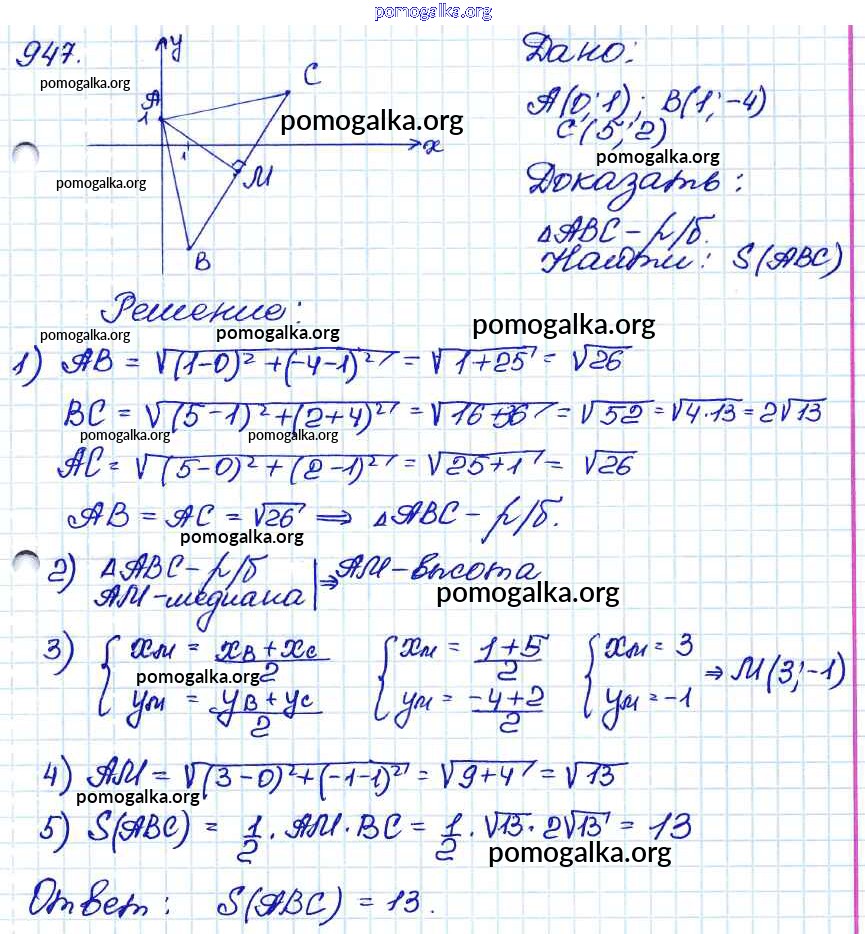 pomogalka.org
947.
pomogalka.org
y
A
1
C
pomogalka.org
x
1
M
pomogalka.org
B
Дано:
A(0;1); B(1;-4)
C(5;2)
pomogalka.org
Доказать:
△ABC - р/б.
Найти: S(ABC)
Решение:
pomogalka.org pomogalka.org pomogalka.org
1) AB = √((1-0)² + (-4-1)²) = √(1+25) = √26
BC = √((5-1)² + (2+4)²) = √(16+36) = √52 = √(4·13) = 2√13
pomogalka.org pomogalka.org
AC = √((5-0)² + (2-1)²) = √(25+1) = √26
AB = AC = √26 ⇒ △ABC - р/б.
pomogalka.org
2) △ABC - р/б | ⇒ AM - высота
AM - медиана
pomogalka.org
3) { xм = (xв + xс)/2 { xм = (1+5)/2 { xм = 3
yм = (yв + yс)/2 yм = (-4+2)/2 yм = -1 ⇒ M(3;-1)
pomogalka.org
4) AM = √((3-0)² + (-1-1)²) = √(9+4) = √13
pomogalka.org
5) S(ABC) = 1/2 · AM · BC = 1/2 · √13 · 2√13 = 13
pomogalka.org
Ответ: S(ABC) = 13.